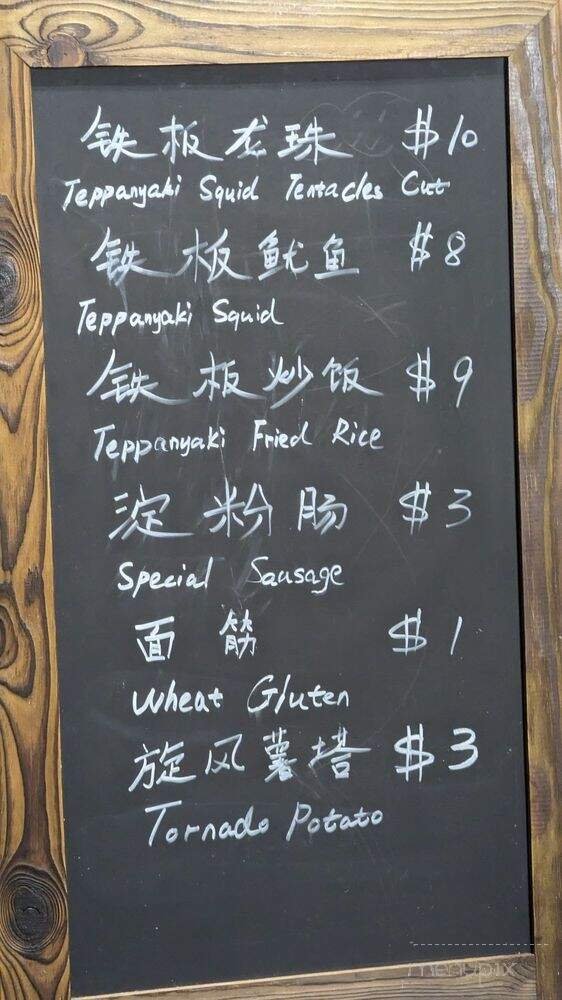 铁板龙珠 $10
Teppanyaki Squid Tentacles Cut
铁板鱿鱼 $8
Teppanyaki Squid
铁板炒饭 $9
Teppanyaki Fried Rice
淀粉肠 $3
Special Sausage
面筋 $1
Wheat Gluten
旋风薯塔 $3
Tornado Potato
menupix